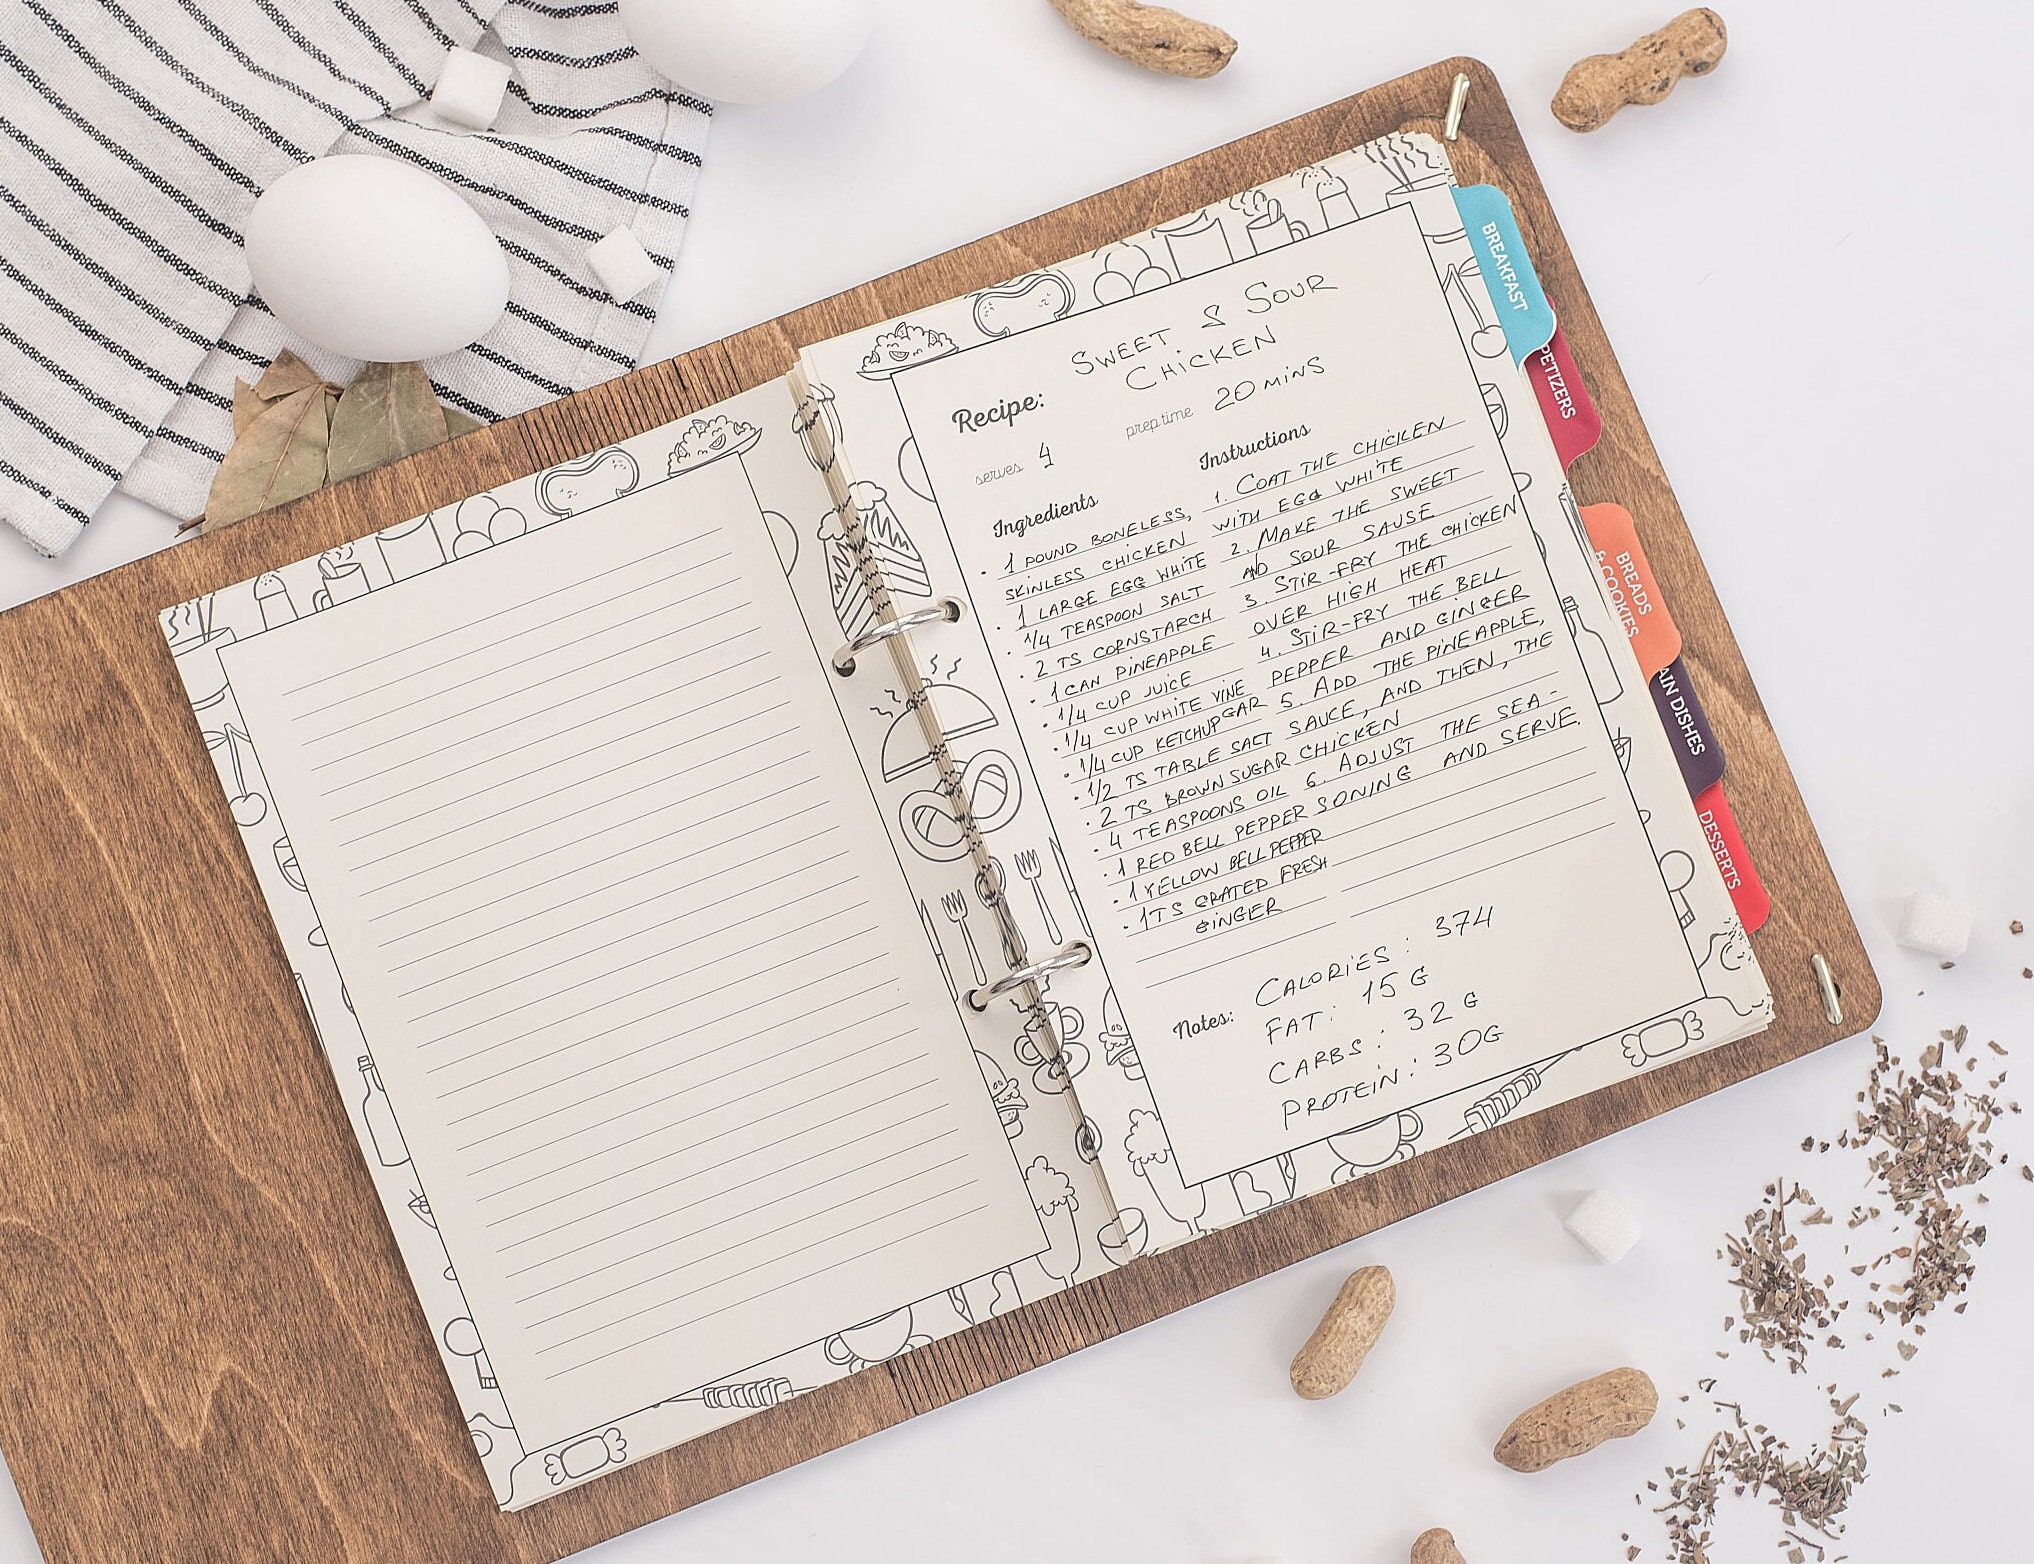 Recipe:
SWEET & SOUR
CHICKEN
serves 4
prep time 20 MINS
Ingredients
• 1 POUND BONELESS,
SKINLESS CHICKEN
• 1 LARGE EGG WHITE
• 1/4 TEASPOON SALT
• 2 TS CORNSTARCH
• 1 CAN PINEAPPLE
• 1/4 CUP JUICE
• 1/4 CUP WHITE VINE
GAR
• 1/4 CUP KETCHUP
• 1/2 TS TABLE SALT
• 2 TS BROWN SUGAR
• 4 TEASPOONS OIL
• 1 RED BELL PEPPER
• 1 YELLOW BELL PEPPER
• 1 TS GRATED FRESH
GINGER
Instructions
1. COAT THE CHICKEN
WITH EGG WHITE
2. MAKE THE SWEET
AND SOUR SAUSE
3. STIR-FRY THE CHICKEN
OVER HIGH HEAT
4. STIR-FRY THE BELL
PEPPER AND GINGER
5. ADD THE PINEAPPLE,
SAUCE, AND THEN, THE
CHICKEN
6. ADJUST THE SEA-
SONING AND SERVE.
Notes:
CALORIES: 374
FAT: 15 G
CARBS: 32 G
PROTEIN: 30G
BREAKFAST
PETIZERS
BREADS
& COOKIES
AIN DISHES
DESSERTS